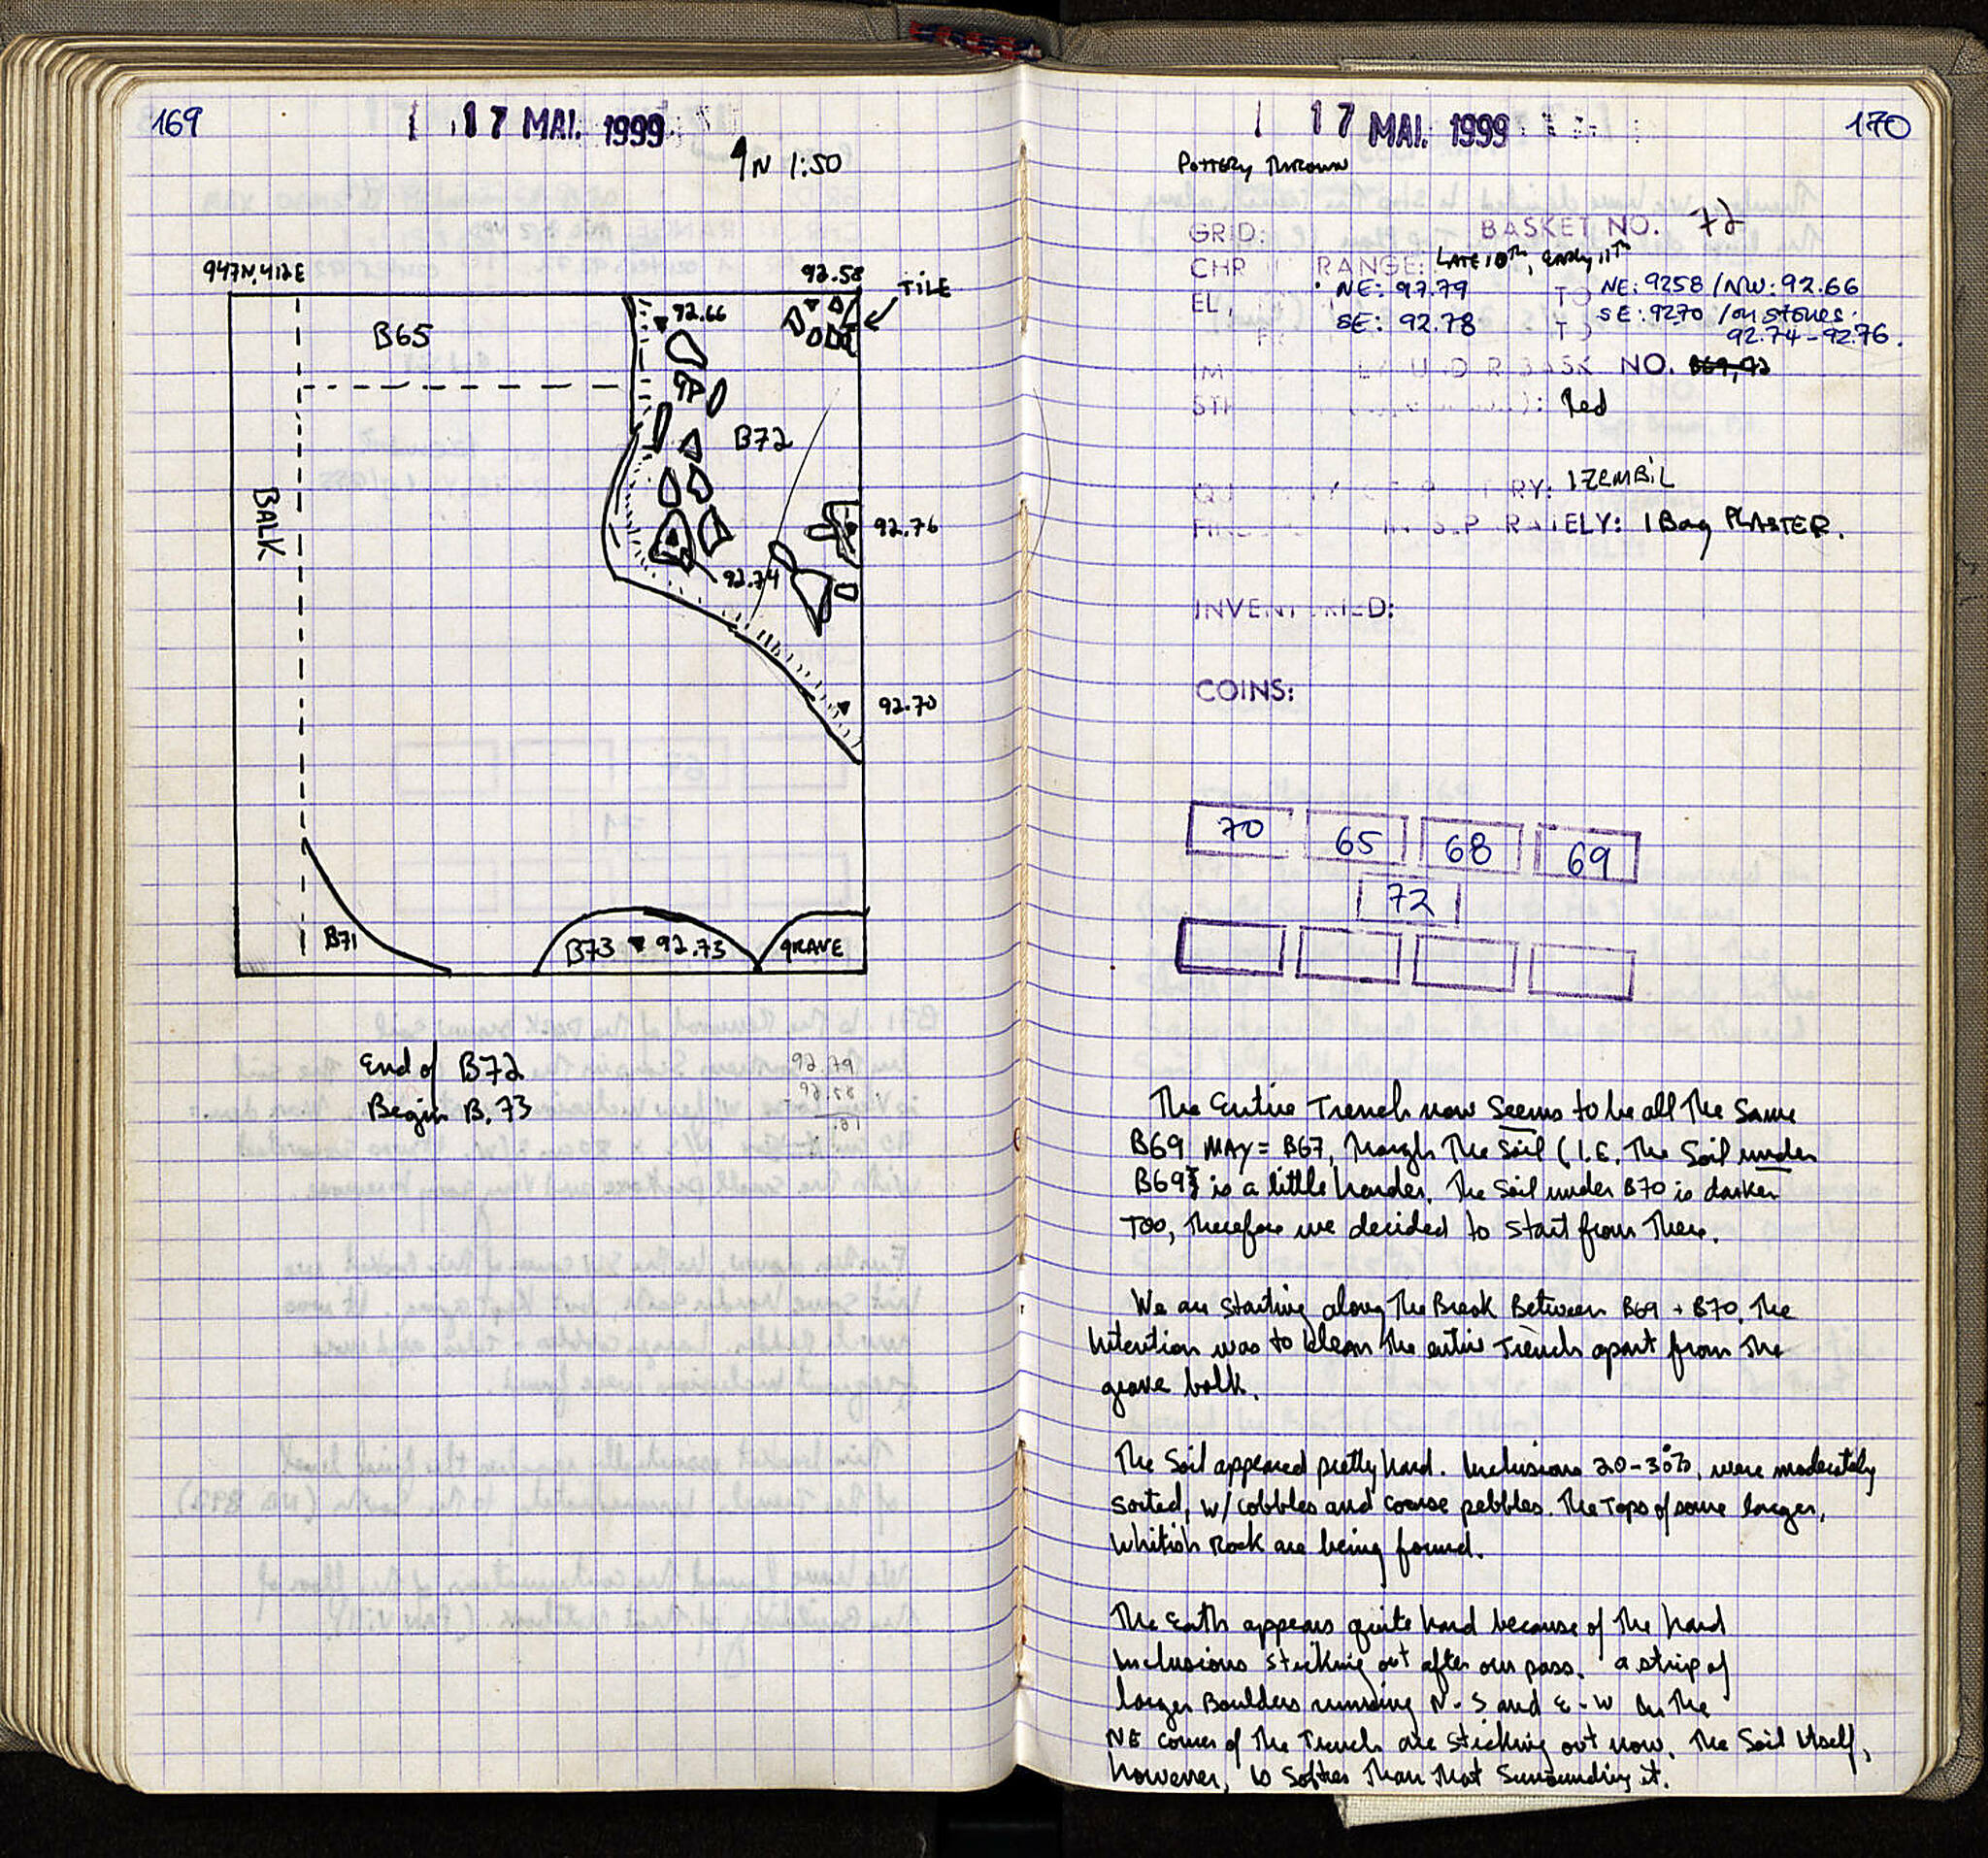 169
17 MAI. 1999
N 1:50
947N, 412E
92.58
TILE
B65
92.66
B72
BALK
92.76
92.74
92.70
B71
B73 92.73
GRAVE
End of B72
Begin B. 73
92.79
92.58
170
17 MAI. 1999
POTTERY THROWN
GRID:
BASKET NO. 72
CHR RANGE: LATE 10TH, EARLY 11TH
EL, NE: 92.79 TO NE: 9258 / NW: 92.66
SE: 92.78 TO SE: 9270 / on stones:
92.74-92.76.
NO.
: Red
RY: 1 ZEMBIL
RATELY: 1 Bag PLASTER.
INVENT RIED:
COINS:
70 65 68 69
72
The Entire Trench now Seems to be all the Same
B69 MAY = B67, though The Soil (I.E. The Soil under
B69} is a little harder. The Soil under B70 is darker
TOO, Therefore we decided to start from There.
We are starting along The Break Between B69 + B70. The
Intention was to clean the entire Trench apart from the
grave balk.
The Soil appeared pretty hard. Inclusions 20-30%, were moderately
sorted, w/ cobbles and coarse pebbles. The Tops of some larger,
whitish Rock are being found.
The Earth appears quite hard because of The hard
Inclusions sticking out after our pass. A strip of
larger Boulders running N-S and E-W in The
NE corner of The Trench are sticking out now. The Soil Itself,
however, is softer than that surrounding it.